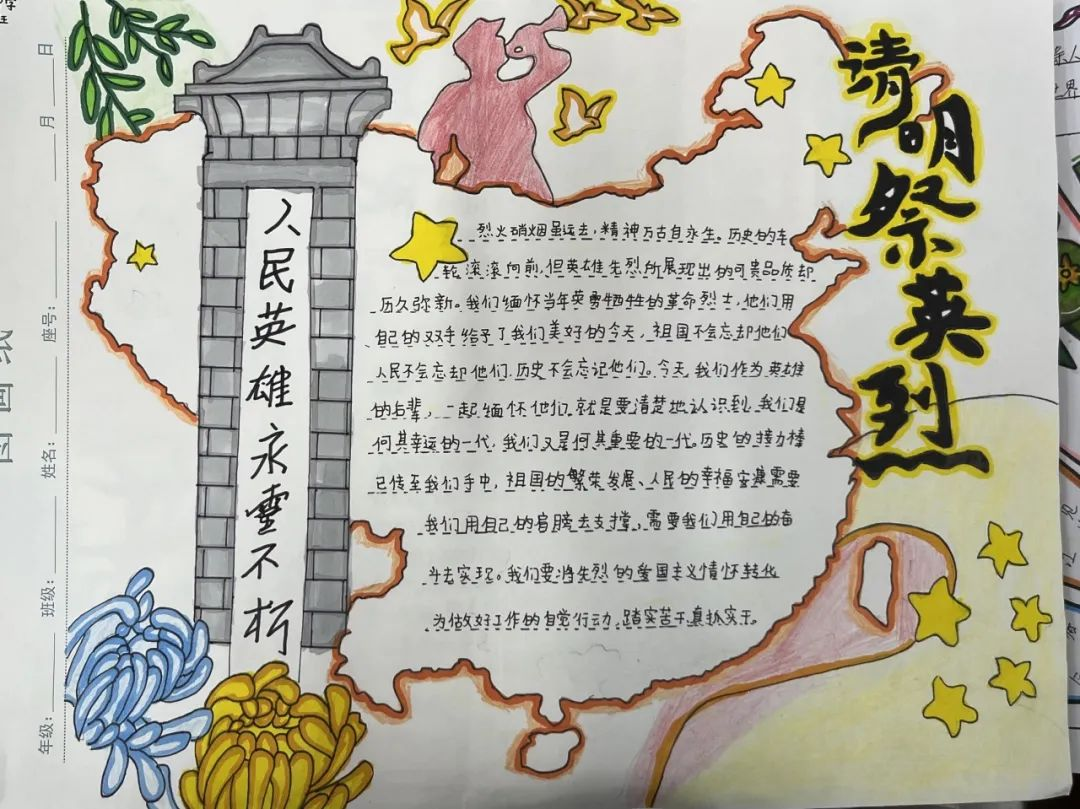 清明祭英烈
人民英雄永垂不朽
烈火硝烟虽远去,精神万古自永生。历史的车
轮滚滚向前,但英雄先烈所展现出的可贵品质却
历久弥新。我们缅怀当年英勇牺牲的革命烈士,他们用
自己的双手给予了我们美好的今天,祖国不会忘却他们
人民不会忘却他们,历史不会忘记他们。今天,我们作为英雄
的后辈,一起缅怀他们,就是要清楚地认识到,我们是
何其幸运的一代,我们又是何其重要的一代。历史的接力棒
已传至我们手中,祖国的繁荣发展、人民的幸福安康需要
我们用自己的肩膀去支撑,需要我们用自己的奋
斗去实现。我们要将先烈的爱国主义情怀转化
为做好工作的自觉行动,踏实苦干真抓实干。
年级: 班级: 姓名: 座号: 月 日